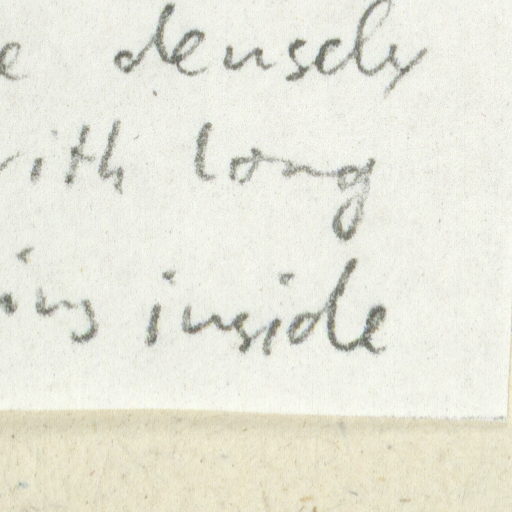 e densely
with long
inside